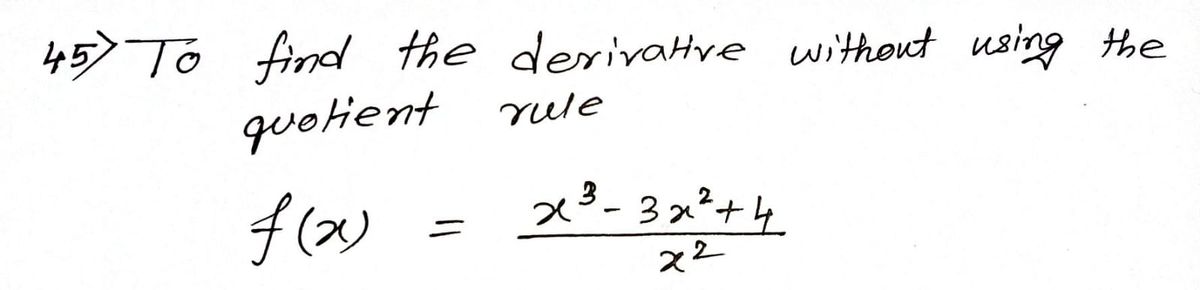 45) To find the derivative without using the
quotient rule
f(x) = x³ - 3x² + 4 / x²